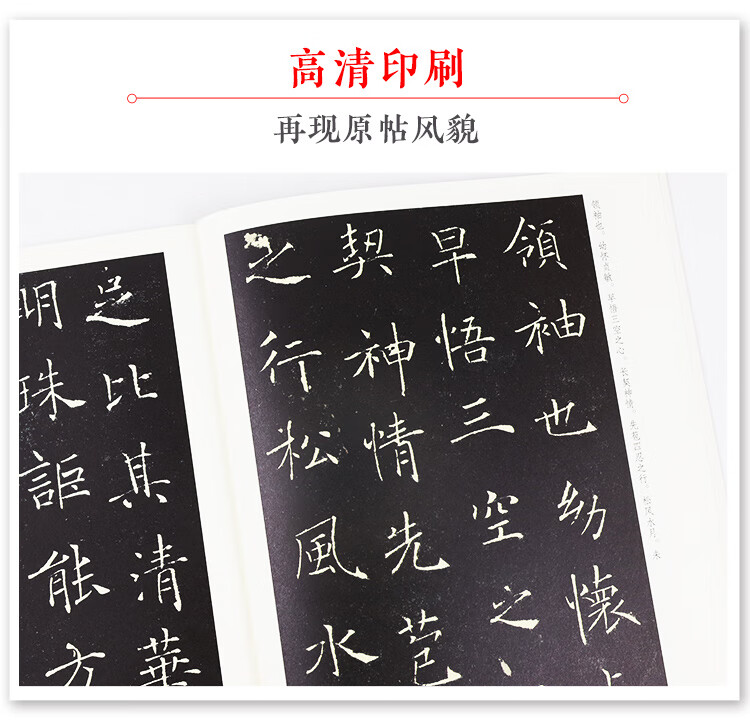 高清印刷
再现原帖风貌
领袖也。幼怀贞敏，早悟三空之心，长契神情，先苞四忍之行。松风水月，未
領袖也幼懷
早悟三空之
契神情先苞
之行松風水
足比其清華
明珠詎能方